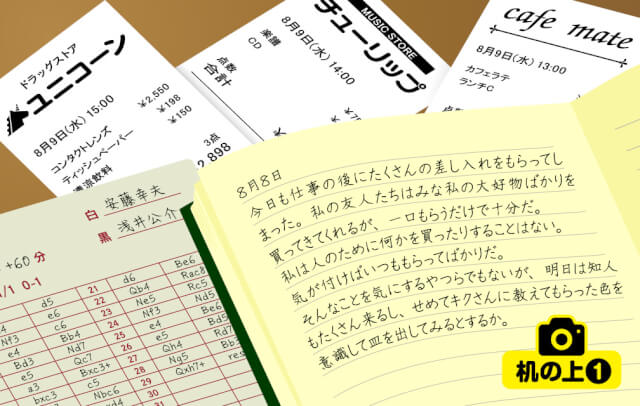 ドラッグストア
ユニコーン
8月9日(水) 15:00
コンタクトレンズ
¥2,550
ティッシュペーパー
¥198
清涼飲料
¥150
3点
2,898
MUSIC STORE
チューリップ
8月9日(水) 14:00
楽譜
CD
点数
合計
cafe mate
8月9日(水) 13:00
カフェラテ
ランチC
白 安藤幸夫
黒 浅井公介
+60分
1/1 0-1
d5 21 d6 Be6
Nf3 e6 22 Qb4 Rac8
e4 c6 23 Ne5 Rc5
Bd3 Bb4 24 Nf3 Bd5
e5 Nd7 25 e4
a3 Qc7 26
bxc3 Bxc3+ 27 Qh4
c5 28 Ng5 Bb3
Nbc6 Qxh7+ res
8月8日
今日も仕事の後にたくさんの差し入れをもらってし
まった。私の友人たちはみな私の大好物ばかりを
買ってきてくれるが、一口もらうだけで十分だ。
私は人のために何かを買ったりすることはない。
気が付けばいつももらってばかりだ。
そんなことを気にするやつらでもないが、明日は知人
もたくさん来るし、せめてキクさんに教えてもらった色を
意識して皿を出してみるとするか。
机の上1